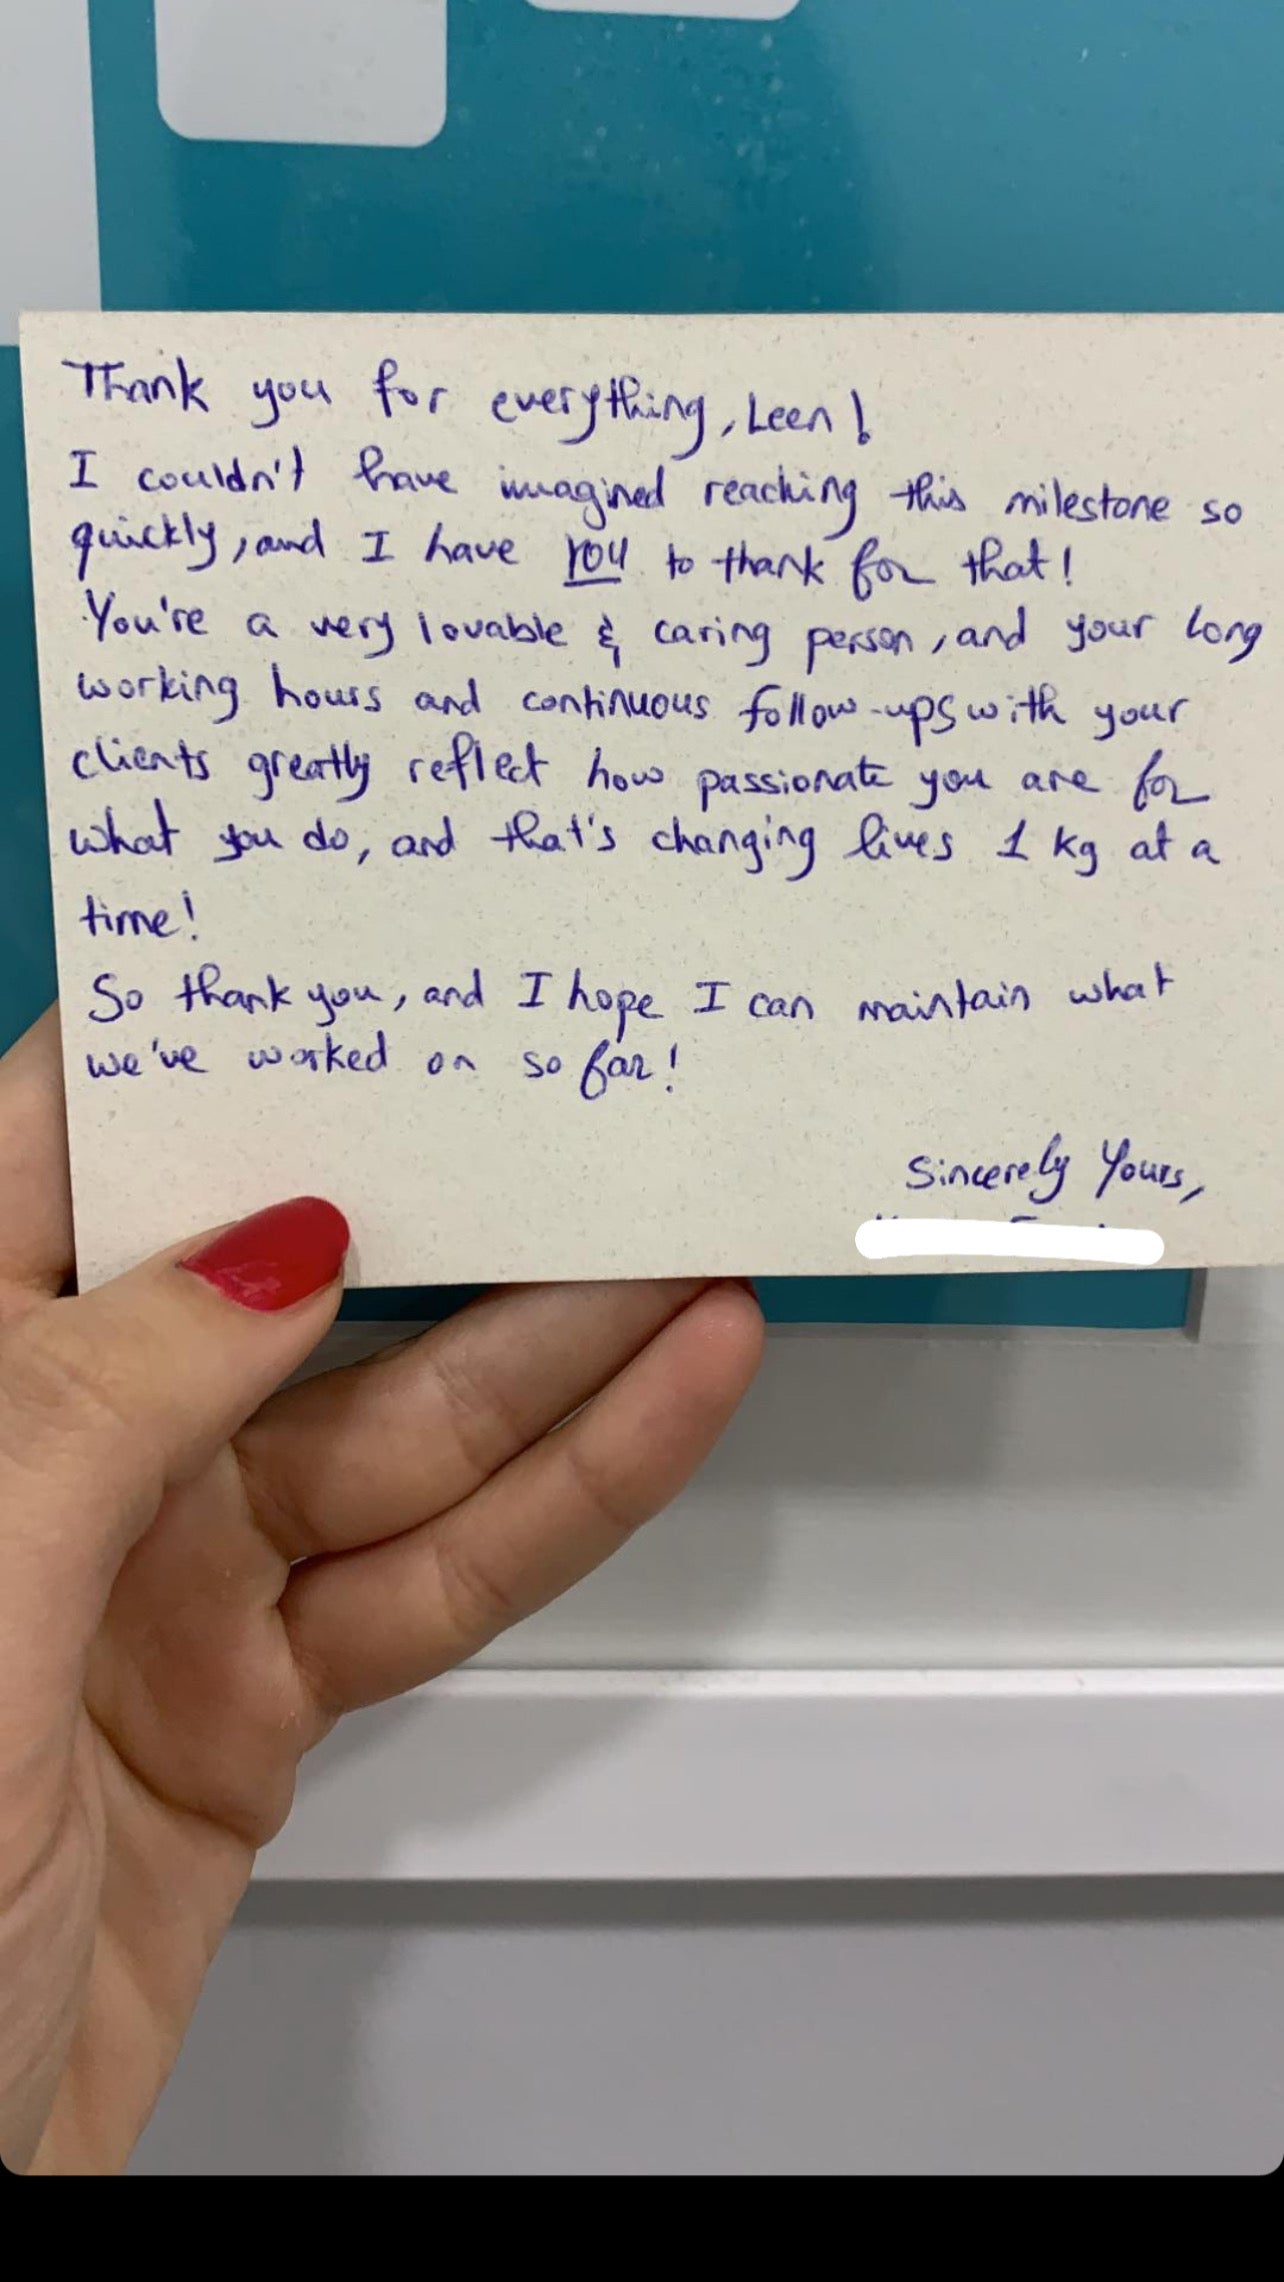 Thank you for everything, Leen!
I couldn't have imagined reaching this milestone so
quickly, and I have YOU to thank for that!
You're a very lovable & caring person, and your long
working hours and continuous follow-ups with your
clients greatly reflect how passionate you are for
what you do, and that's changing lives 1 kg at a
time!
So thank you, and I hope I can maintain what
we've worked on so far!
Sincerely Yours,